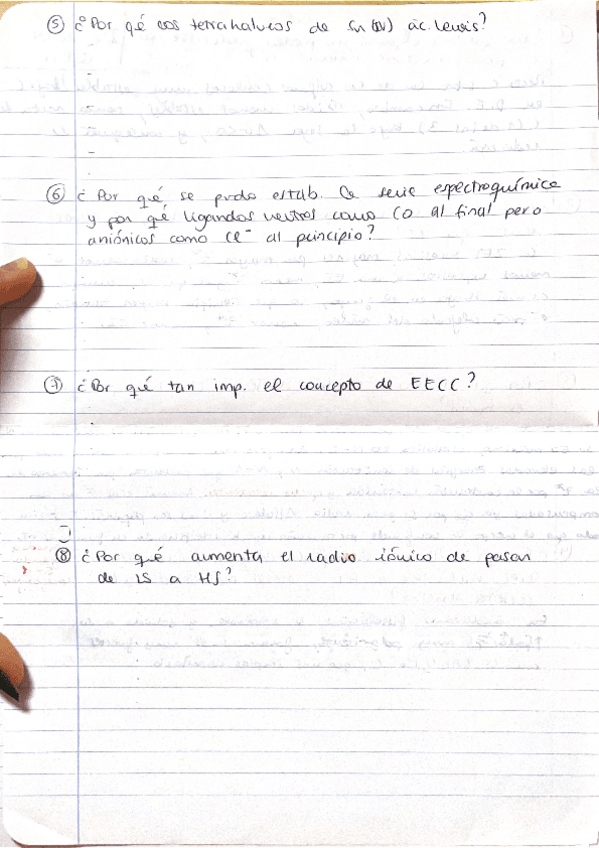 ⑤ ¿Por qé los tetrahaluros de Sn (IV) ác. Lewis?
⑥ ¿Por qué se pudo estab. la serie espectroquímica
y por qé ligandos neutros como CO al final pero
aniónicos como Cl⁻ al principio?
⑦ ¿Por qué tan imp. el concepto de EECC?
⑧ ¿Por qué aumenta el radio iónico de pasar
de LS a HS?